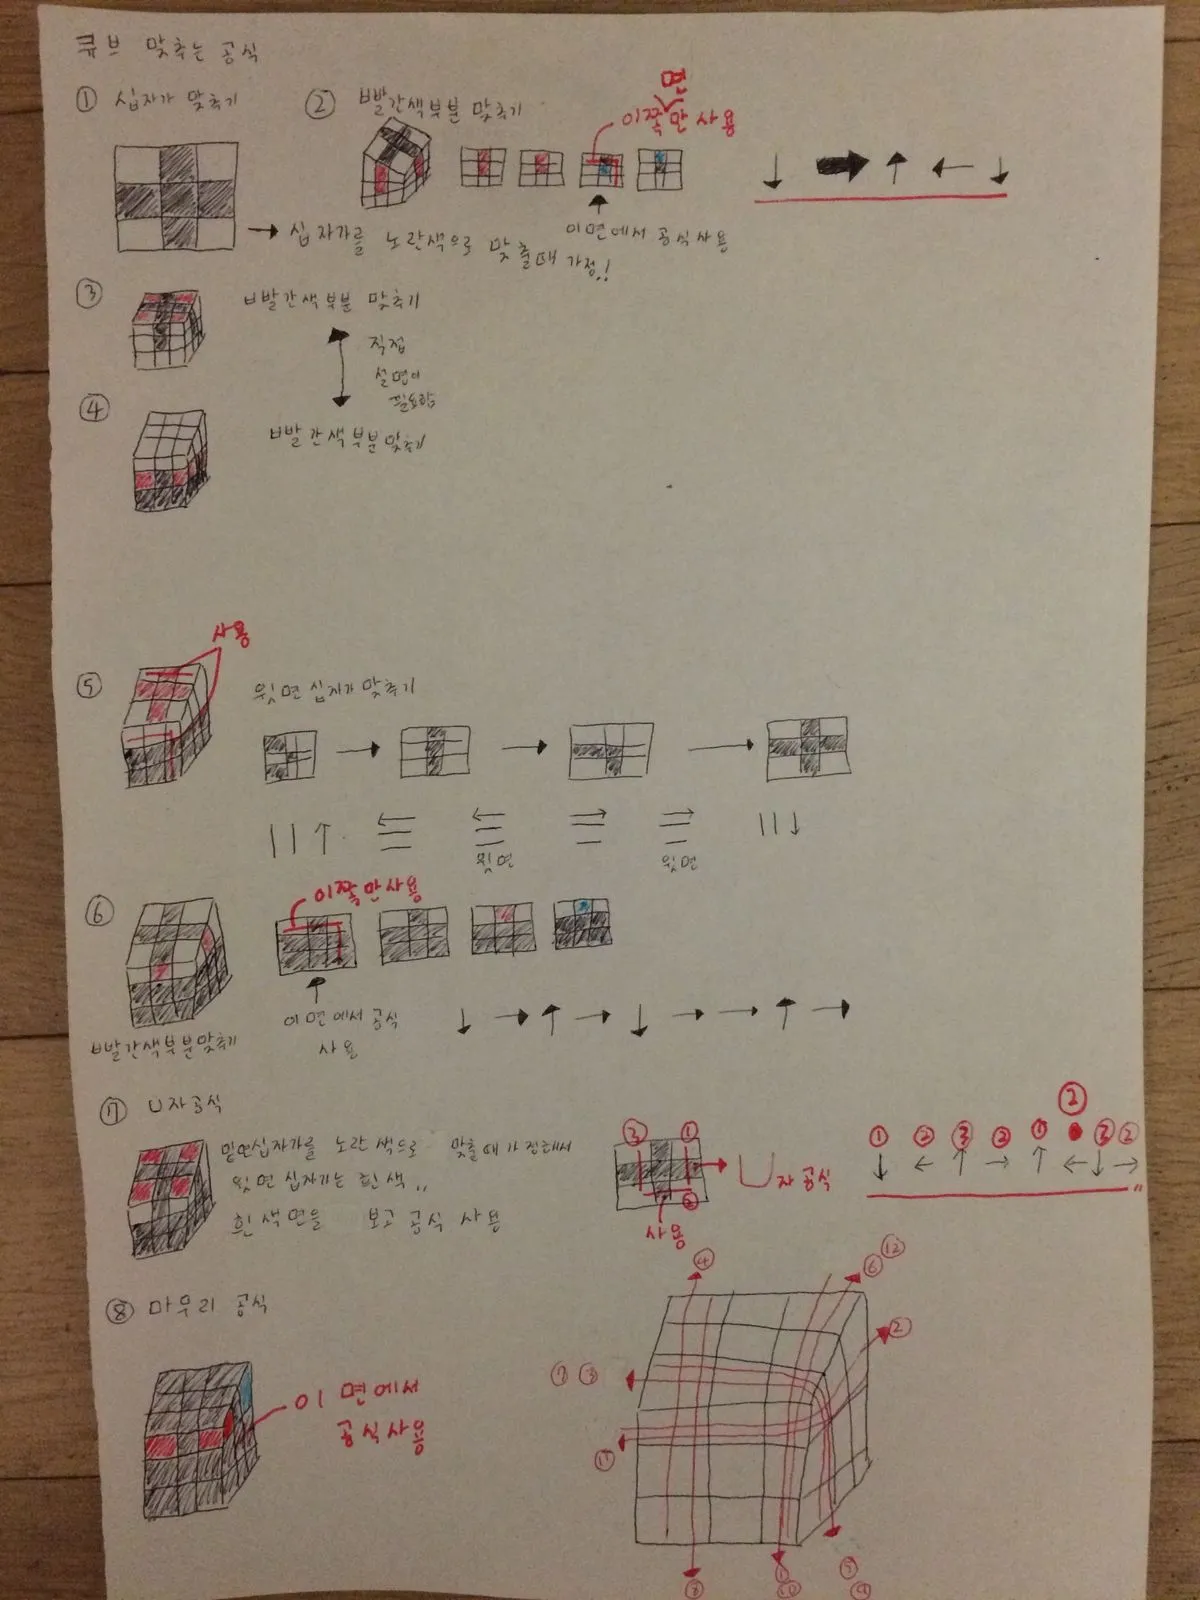 큐브 맞추는 공식
① 십자가 맞추기
② 빨간색부분 맞추기
면
이쪽만 사용
이면에서 공식사용
→ 십자가를 노란색으로 맞출때 가정.!
③ 빨간색부분 맞추기
직접
설명이
필요함
④ 빨간색부분맞추기
사용
⑤ 윗면 십자가 맞추기
윗면
윗면
⑥ 이쪽만사용
이면에서 공식
사용
빨간색부분맞추기
⑦ U자공식
밑면십자가를 노란색으로 맞출때 가정해서
윗면 십자가는 흰색..
흰색면을 보고 공식 사용
③ ①
②
U자 공식
사용
① ② ③ ② ① ② ③ ②
↓ ← ↑ → ↑ ← ↓ →
⑧ 마무리 공식
이 면에서
공식사용
④ ⑥ ⑫
②
⑦ ③
⑪
⑧